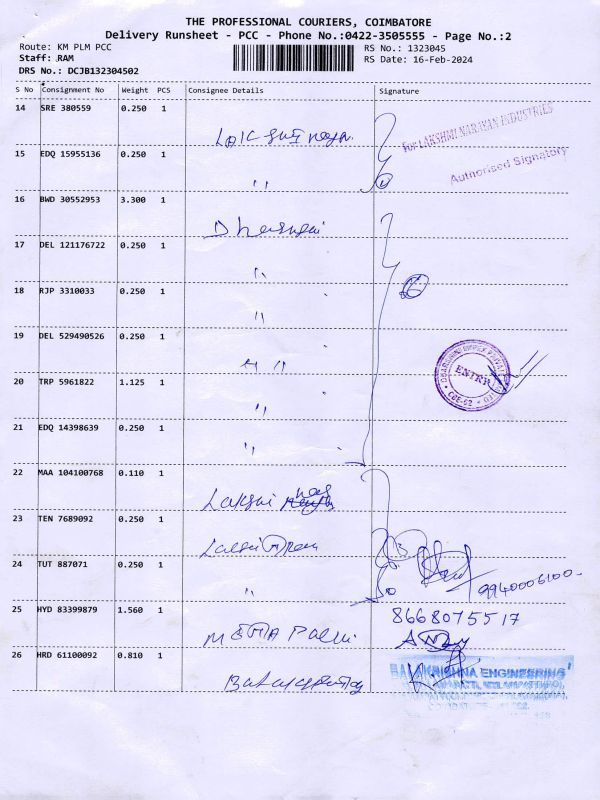 THE PROFESSIONAL COURIERS, COIMBATORE
Delivery Runsheet - PCC - Phone No.:0422-3505555 - Page No.:2
Route: KM PLM PCC
RS No.: 1323045
Staff: RAM
RS Date: 16-Feb-2024
DRS No.: DCJB132304502
S No Consignment No Weight PCS Consignee Details Signature
14 SRE 380559 0.250 1
For LAKSHMI NARAYAN INDUSTRIES
15 EDQ 15955136 0.250 1
Authorised Signatory
"
16 BWD 30552953 3.300 1
17 DEL 121176722 0.250 1
"
18 RJP 3310033 0.250 1
"
19 DEL 529490526 0.250 1
" "
20 TRP 5961822 1.125 1
ENTRY
CBE-62
"
21 EDQ 14398639 0.250 1
"
22 MAA 104100768 0.110 1
23 TEN 7689092 0.250 1
24 TUT 887071 0.250 1
"
9940006100
25 HYD 83399879 1.560 1
8668075517
26 HRD 61100092 0.810 1
BALAKRISHNA ENGINEERING